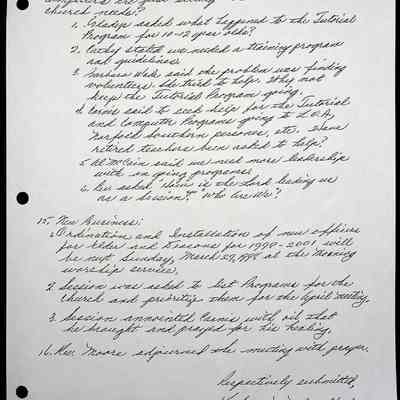 church needs?
1. Gladys asked what happened to the Tutorial
Program for 10-12 year olds?
2. Cathy stated we needed a training program
and guidelines.
3. Barbara said the problem was finding
volunteers. She tried to help. Why not
keep the Tutorial Program going.
4. said to seek help for the Tutorial
and Computer Programs going to
Norfolk Southern persons, etc. Have
retired teachers been asked to help?
5. Al McCain said we need more leadership
with on going programs.
6. Rev asked "How is the Lord leading us
as a session?" "Who Are We"?
15. New Business:
1. Ordination and Installation of new officers
for Elder and Deacons for 1998-2001 will
be next Sunday, March 29, 1998 at the Morning
worship service.
2. Session was asked to list Programs for the
Church and prioritize them for the April meeting.
3. Session annointed with oil that
he brought and prayed for his healing.
16. Rev. Moore adjourned the meeting with prayer.
Respectively submitted,